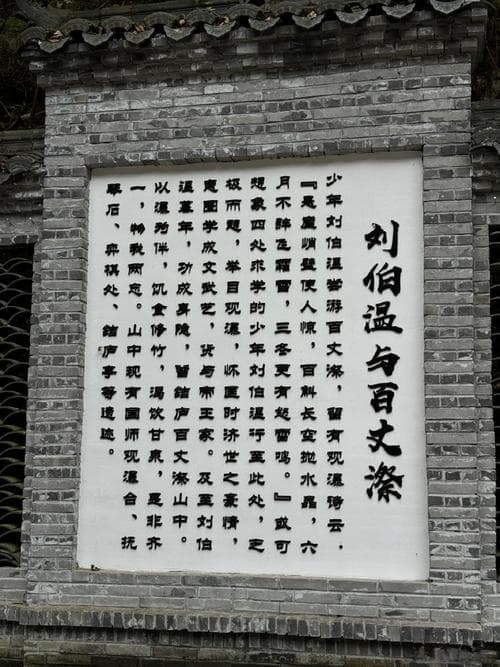 刘伯温与百丈漈
少年刘伯温尝游百丈漈，留有观瀑诗云，
『悬崖峭壁使人惊，百斛长空抛水晶，六
月不辞飞霜雪，三冬更有怒雷鸣。』或可
想象四处求学的少年刘伯温行至此处，乏
极而憩，举目观瀑，怀匡时济世之豪情，
意图学成文武艺，货与帝王家。及至刘伯
温暮年，功成身隐，留结庐百丈漈山中。
以瀑为伴，饥食修竹，渴饮甘泉，是非齐
一，物我两忘。山中现有国师观瀑台、抚
琴石、弈棋处、结庐亭等遗迹。